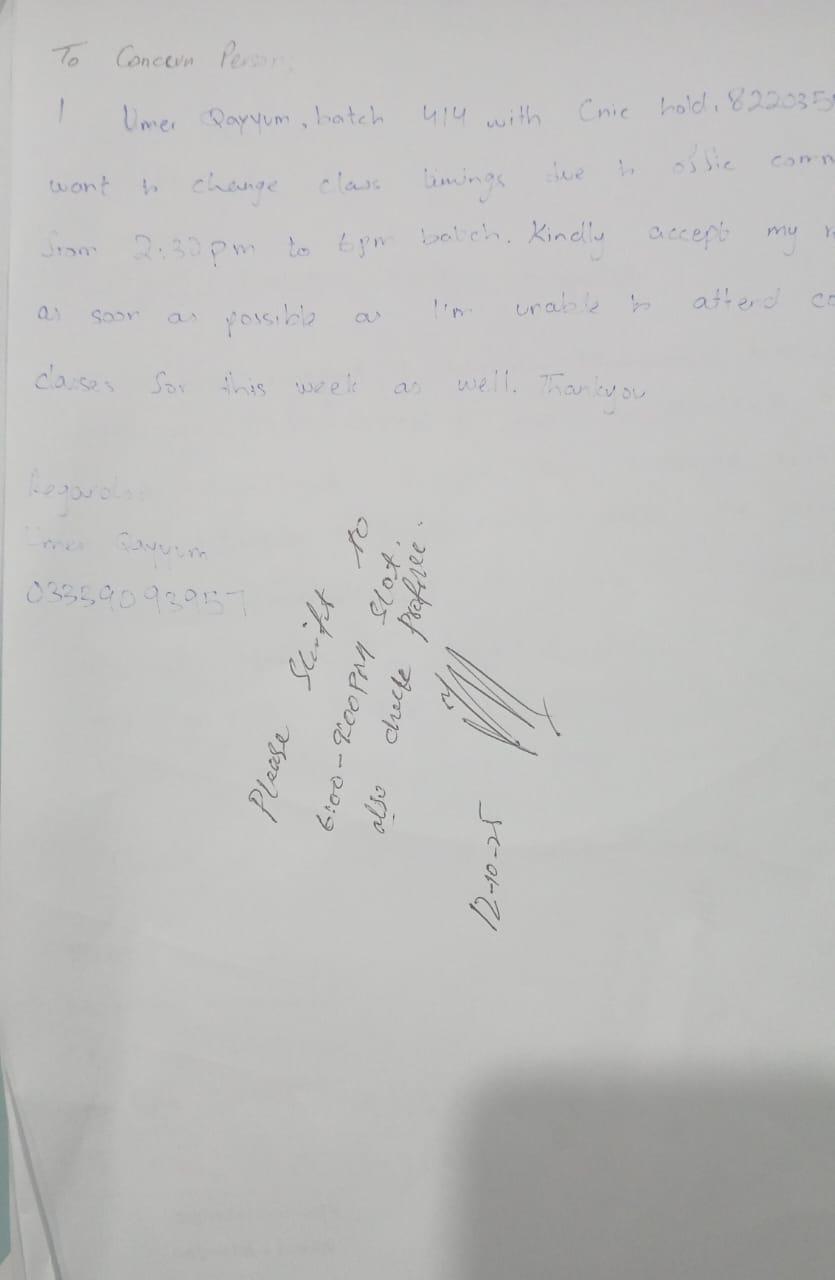 To Concern Person,
I Umer Qayyum, batch 414 with Cnic hold, 822035
want to change class timings due to offic comm
from 2:30pm to 6pm batch. Kindly accept my r
as soon as possible as I'm unable to attend co
classes for this week as well. Thankyou
Regards
Umer Qayyum
03359093957
Please Shift to
6:00-9:00PM Slot.
also check
12-10-25